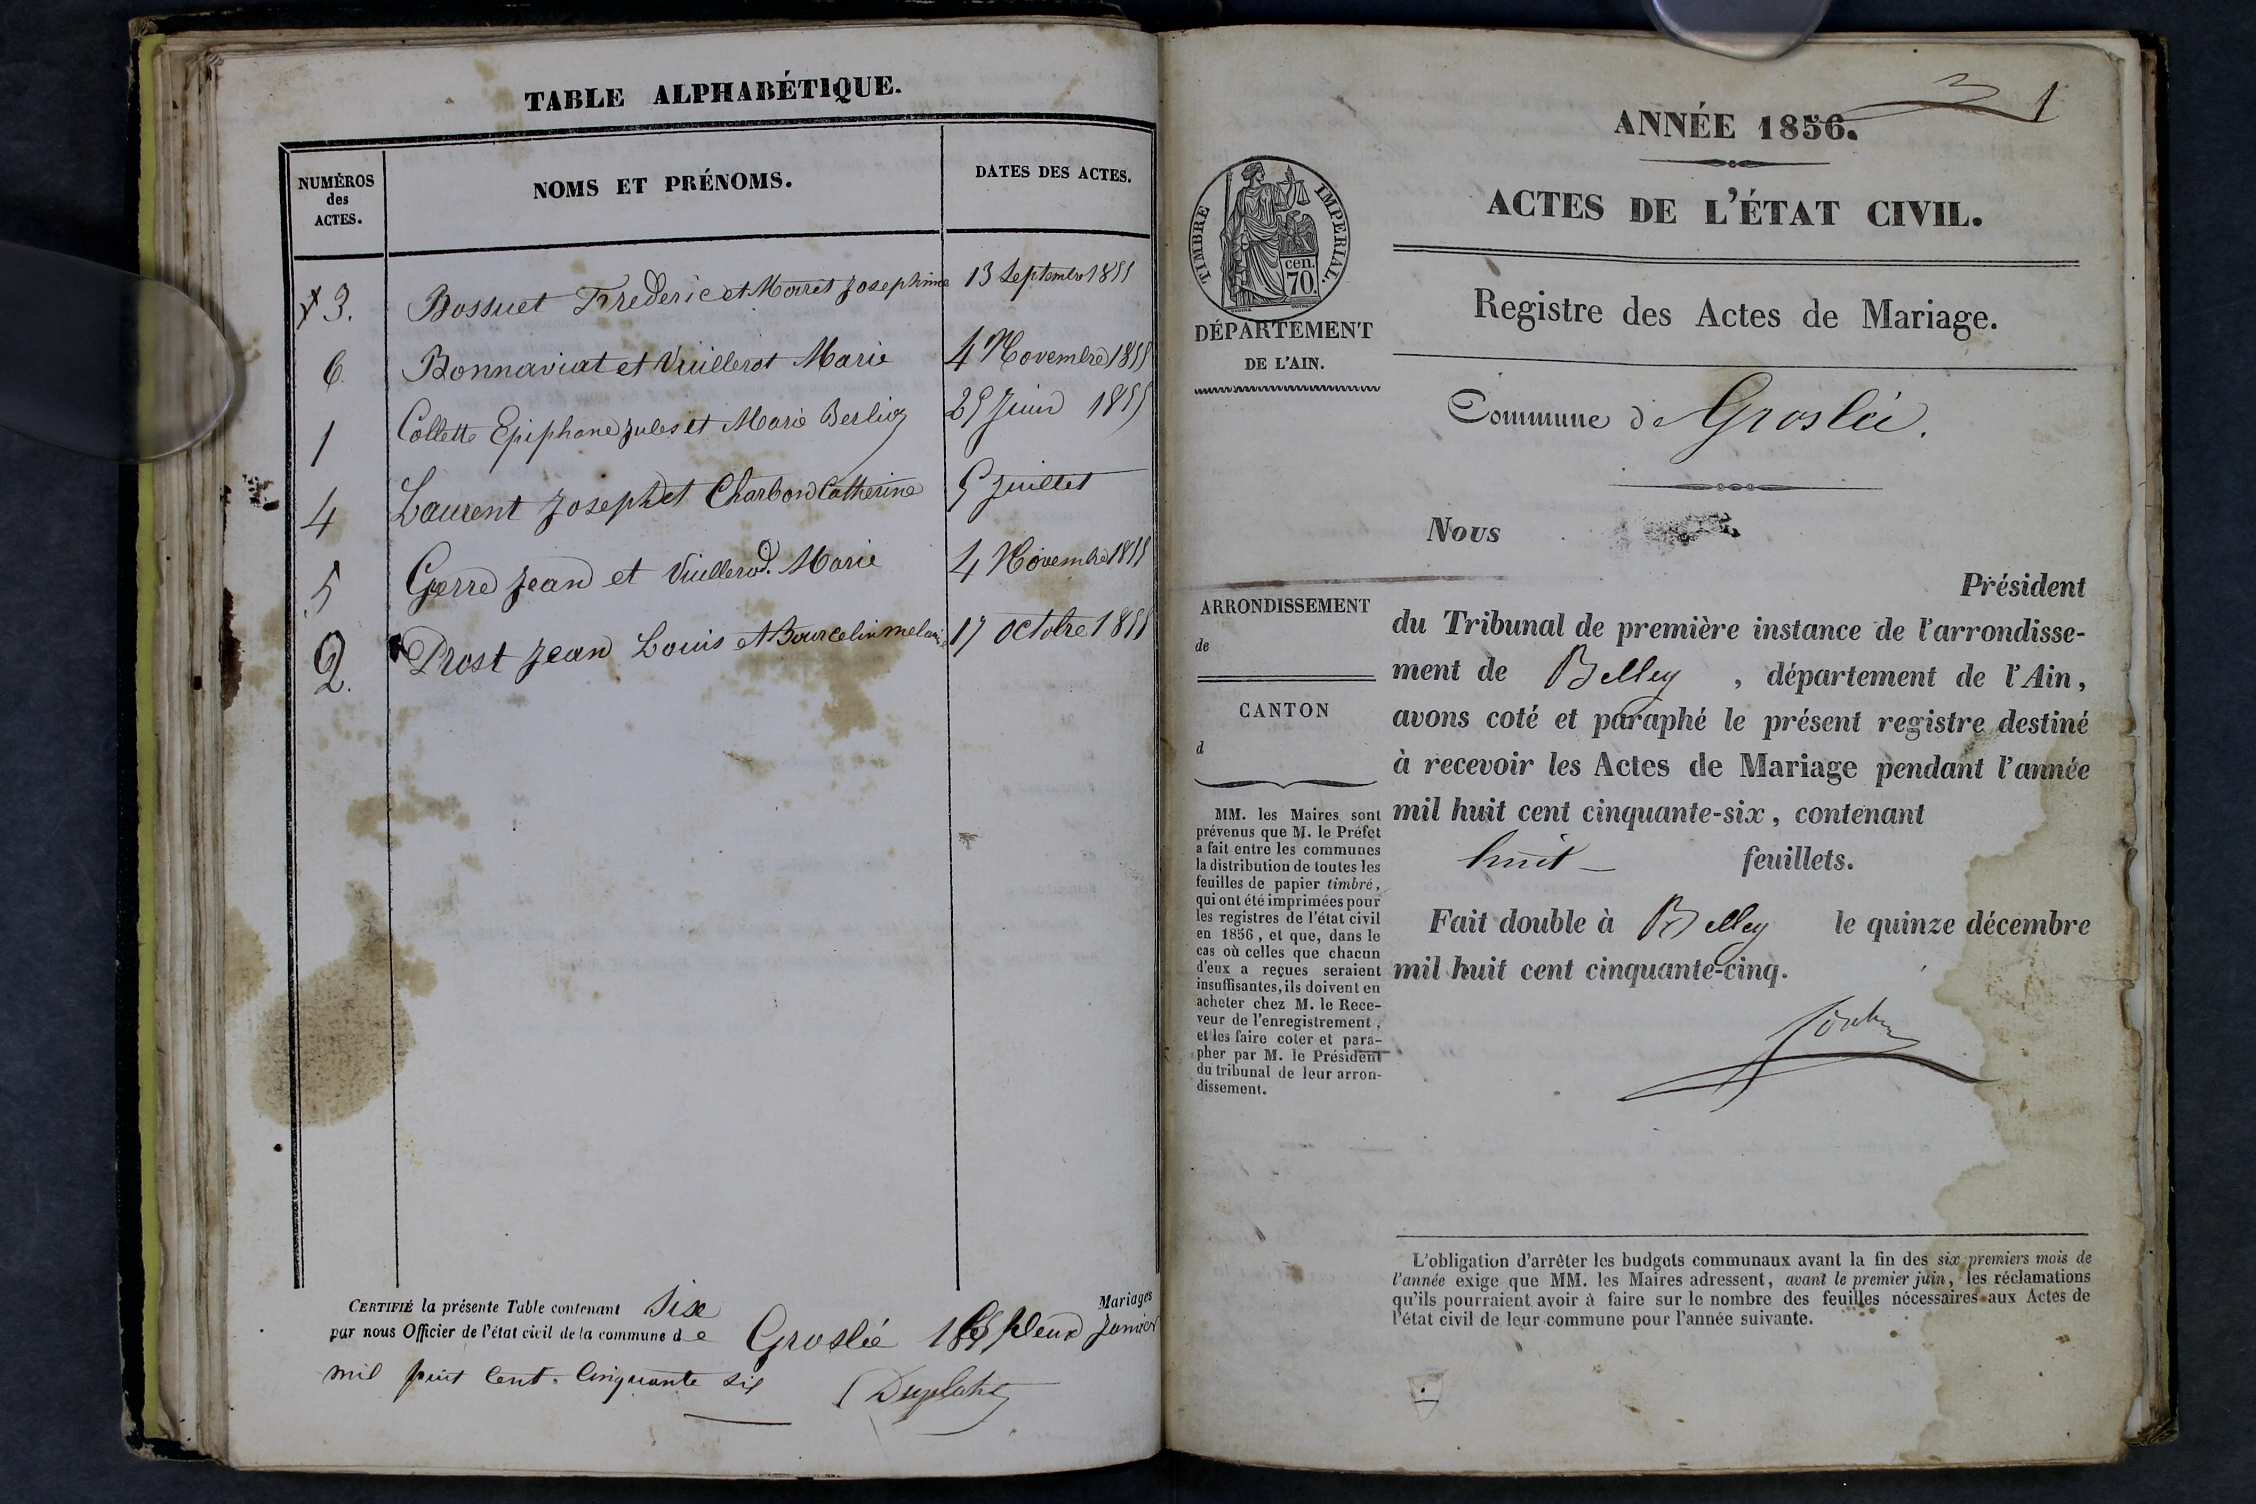 TABLE ALPHABÉTIQUE.
NUMÉROS
des
ACTES.
NOMS ET PRÉNOMS.
DATES DES ACTES.
3. Bossuet Frederic et Morret Josephine 13 Septembre 1855
6. Bonnaviat et Vuillerot Marie 4 Novembre 1855
1 Collette Epiphane Jules et Marie Berlioz 25 Juin 1855
4 Laurent Joseph et Charbon Catherine 5 Juillet
5 Gerre Jean et Vuillerod. Marie 4 Novembre 1855
2. Prost Jean Louis et Bourcelin melanie 17 octobre 1855
CERTIFIÉ la présente Table contenant six Mariages
par nous Officier de l'état civil de la commune de Groslée deux Janvier
mil huit Cent. Cinquante six
3
1
ANNÉE 1856.
ACTES DE L'ÉTAT CIVIL.
TIMBRE IMPERIAL.
cen.
70.
DÉPARTEMENT
DE L'AIN.
Registre des Actes de Mariage.
Commune de Groslée.
Nous
Président
du Tribunal de première instance de l'arrondisse-
ment de Belley , département de l'Ain,
avons coté et paraphé le présent registre destiné
à recevoir les Actes de Mariage pendant l'année
mil huit cent cinquante-six, contenant
huit feuillets.
Fait double à Belley le quinze décembre
mil huit cent cinquante-cinq.
ARRONDISSEMENT
de
CANTON
d
MM. les Maires sont
prévenus que M. le Préfet
a fait entre les communes
la distribution de toutes les
feuilles de papier timbré,
qui ont été imprimées pour
les registres de l'état civil
en 1856, et que, dans le
cas où celles que chacun
d'eux a reçues seraient
insuffisantes, ils doivent en
acheter chez M. le Rece-
veur de l'enregistrement,
et les faire coter et para-
pher par M. le Président
du tribunal de leur arron-
dissement.
L'obligation d'arrêter les budgets communaux avant la fin des six premiers mois de
l'année exige que MM. les Maires adressent, avant le premier juin, les réclamations
qu'ils pourraient avoir à faire sur le nombre des feuilles nécessaires aux Actes de
l'état civil de leur commune pour l'année suivante.